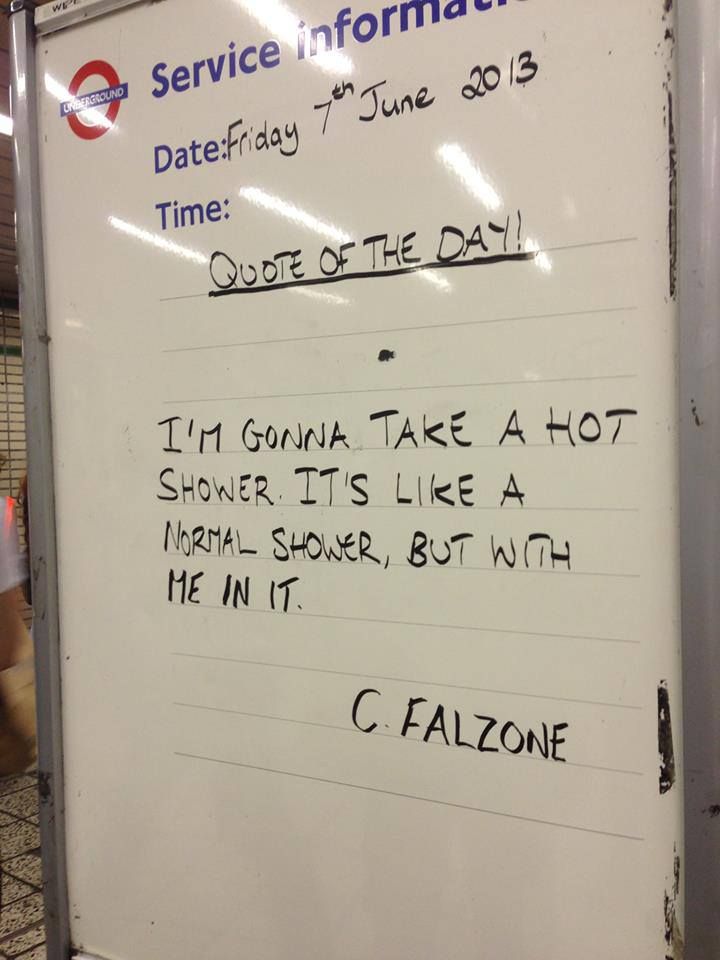 Service informati
UNDERGROUND
Date: Friday 7th June 2013
Time:
QUOTE OF THE DAY!
I'M GONNA TAKE A HOT
SHOWER. IT'S LIKE A
NORMAL SHOWER, BUT WITH
ME IN IT.
C. FALZONE